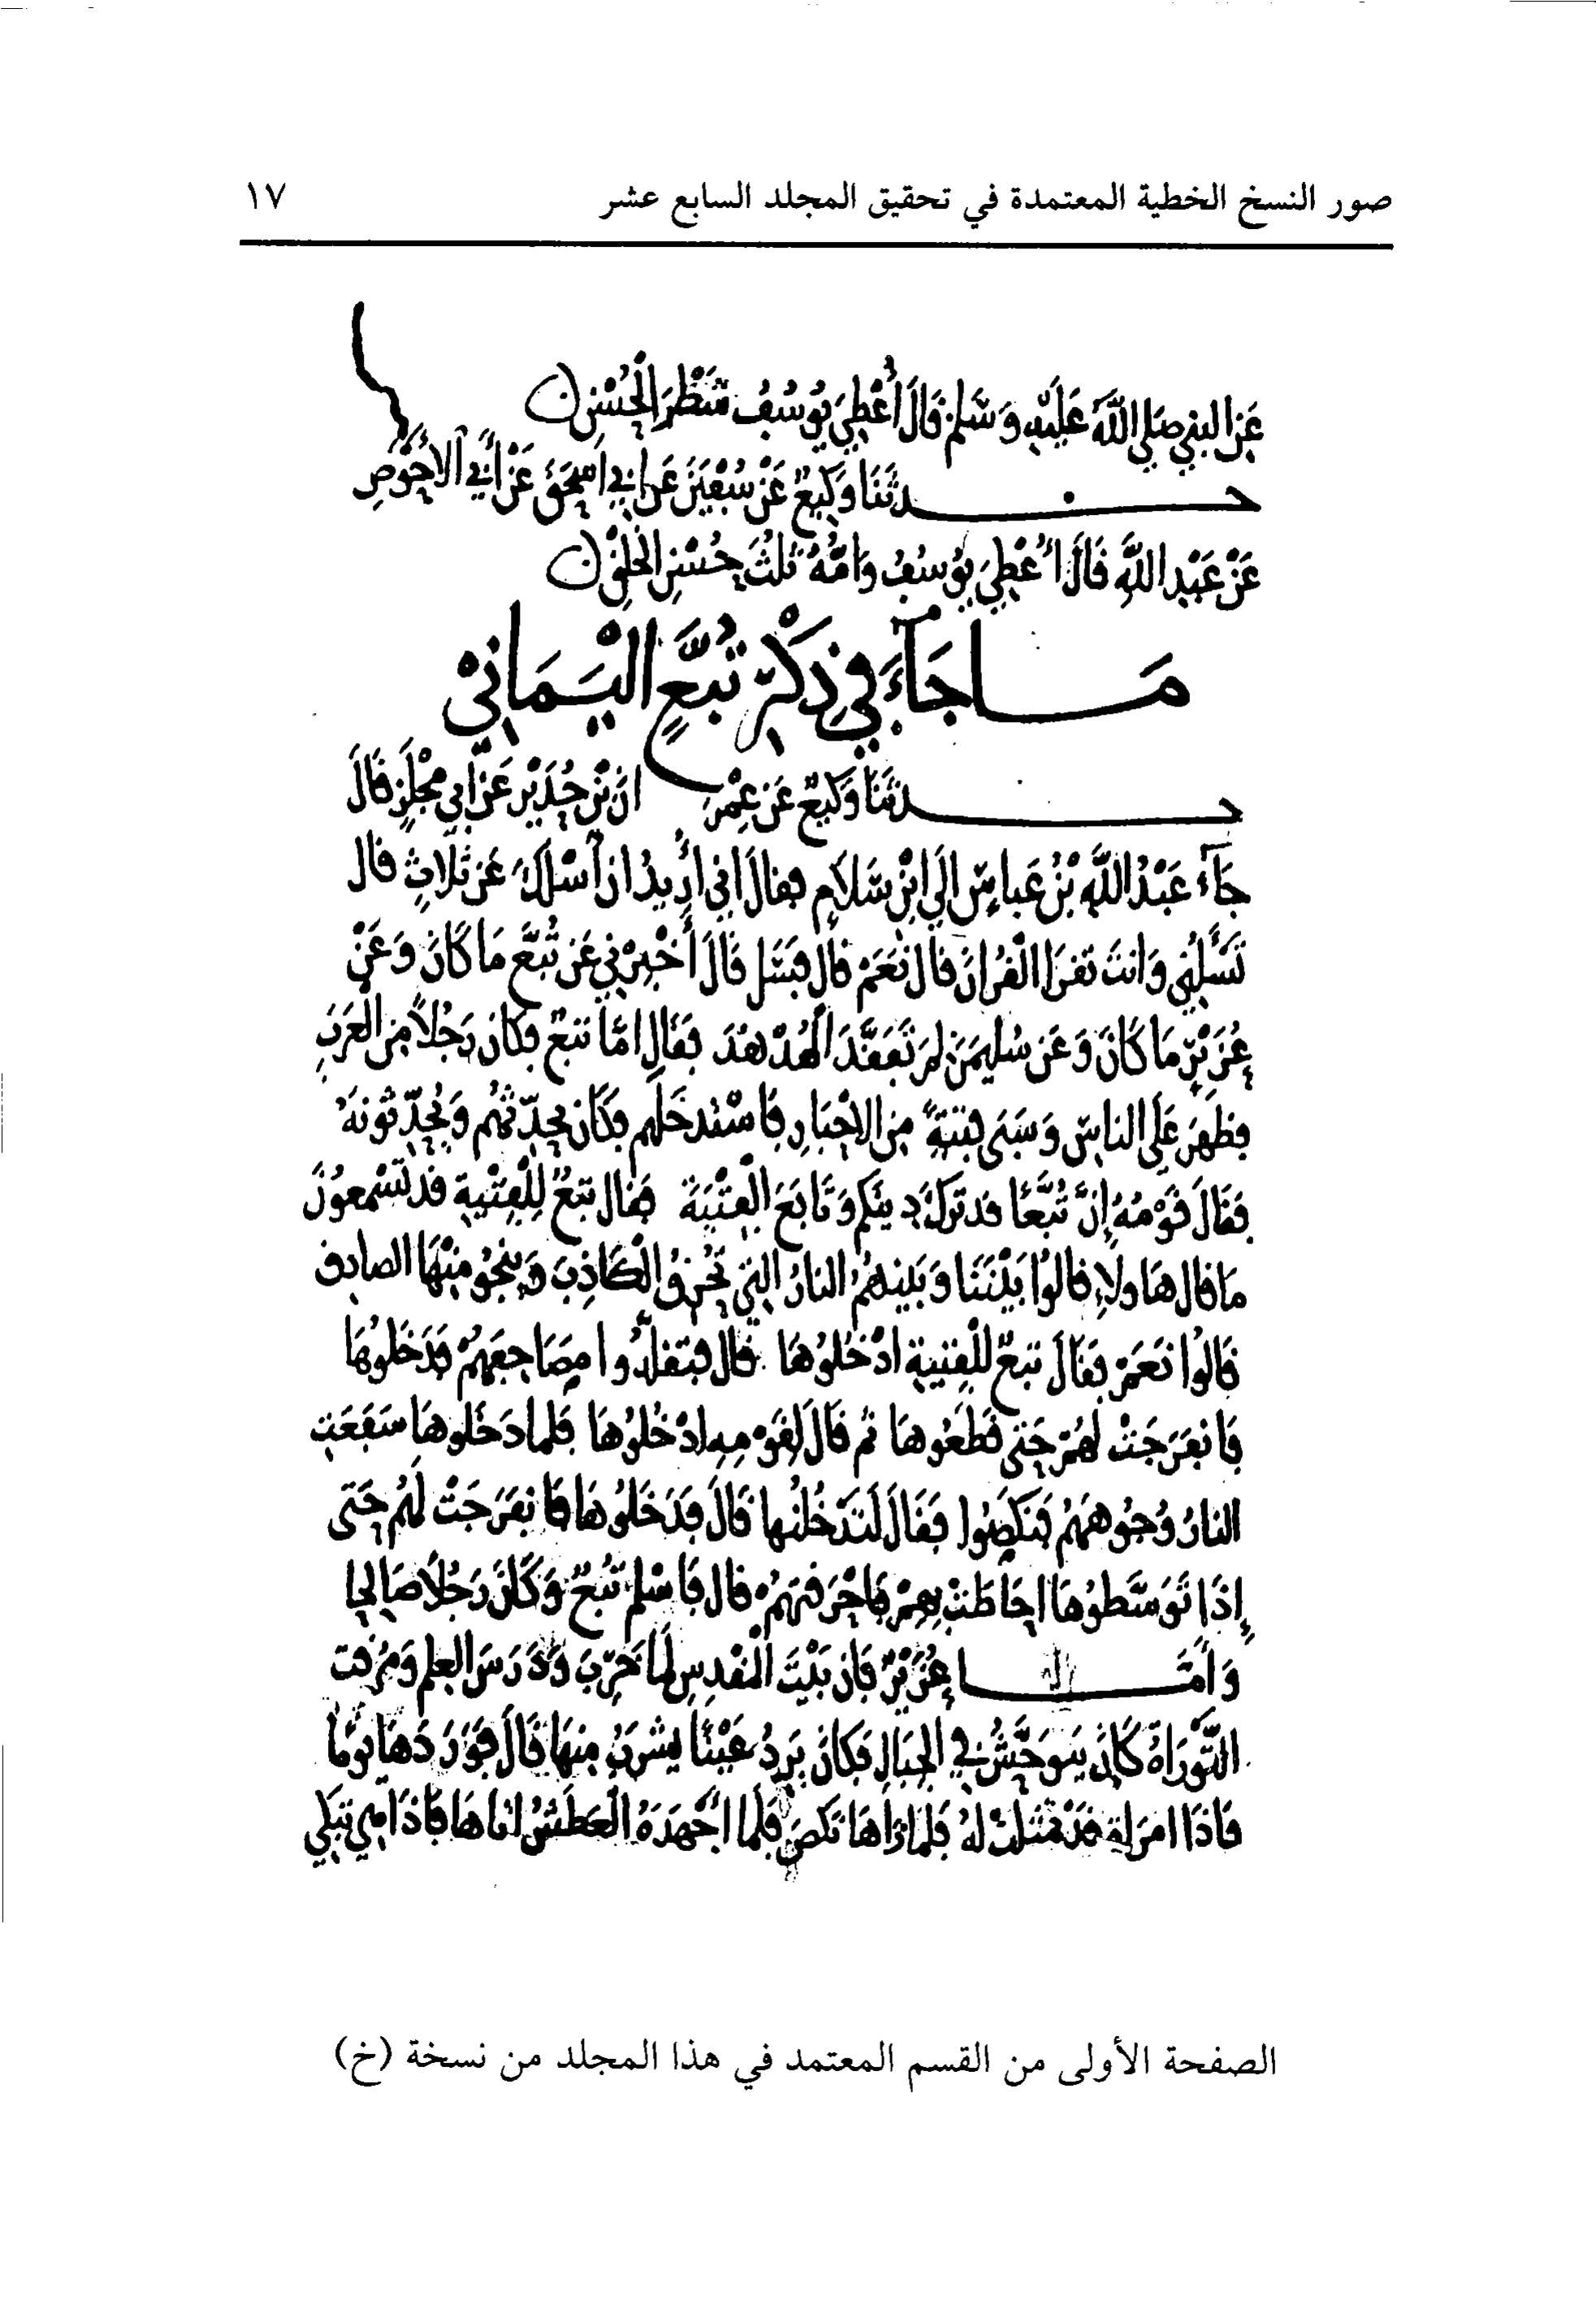 صور النسخ الخطية المعتمدة في تحقيق المجلد السابع عشر ١٧
عَن النبي صلى اللَّه عَليْهِ وَسَلم قَالَ أُعْطِيَ يُوسُفُ شَطْرَ الحُسْنِ
حدثَنَا وَكيعٌ عَنْ سُفْيَنَ عَن ابي اسحَقَ عَنْ أبي الاحْوَصِ
عَنْ عَبْدِ اللَّهِ قَالَ أُعْطِيَ يُوسُفُ وَامُّهُ ثُلُثَ حُسْنِ الخَلْقِ
مَا جَآءَ في ذِكْرِ تُبَّعٍ اليَمَاني
حدثَنَا وَكيعٌ عَن عِمْرَان بْن حُدَيْر عَن ابي مِجْلَزٍ قَالَ
جَآءَ عَبْدُ اللَّهِ بْنُ عَباسٍ الَى ابْنِ سَلَامٍ فقالَ اني أُرِيدُ ان أَسْلَكَ عَن ثَلَاثٍ قال
تَسَْلُنِي وَانتَ تقرَا القُرانَ قال نَعَمْ قال فَسَل قَالَ أَخْبِرْني عَن تُبَّعٍ مَا كَانَ وَعَنْ
عُزَيْرٍ مَا كَانَ وَعَن سُليمَنَ لِمَ تَفَقَّدَ الهُدْهُدَ فَقَالَ امَّا تبعٌ فكَانَ رَجُلًا مِنَ العَرَبِ
فظَهَرَ عَلَى الناسِ وَسَبَى فِتيَةً مِنَ الاحْبَارِ فَاسْتَدخَلَهم فكَانَ يحدّثهُم وَيُحدّثونَهُ
فَقَالَ قَوْمُهُ إِنَّ تُبَّعًا قد تَرَكَ دِينَكم وَتَابَعَ الفِتْيَةَ فقال تبعٌ لِلْفِتْيةِ قد تَسْمعوُنَ
مَا قال هَاولَاءِ قالوُا بَيْنَنَا وَبَينهُم النارُ التي تُحْرِقُ الكَاذِبَ وَينجُو مِنْهَا الصادِق
قَالوُا نَعَمْ فقَالَ تبعٌ لِلْفِتيةِ ادْخُلوُهَا قال فتقلَّدُوا مَصَاحِفَهُمْ فَدَخَلوُهَا
فَانفَرَجَتْ لهُمْ حَتى قَطَعُوهَا ثم قَالَ لِقَوْمِهِ ادْخُلوُهَا فلما دَخَلوهَا سَفَعَتِ
النارُ وُجُوهَهُمْ فنَكَصُوا فَقَالَ لَتَدْخُلُنها قَالَ فَدَخَلوُهَا فَانفَرَجَتْ لهُم حَتى
إِذَا تَوَسَّطوُهَا احَاطَتْ بِهِمْ فَاحْرَقَتهُمْ قال فَاسْلم تُبعٌ وَكَانَ رَجُلًا صَالحا
وَأمَّا عُزَيْرٌ فَان بَيْتَ المَقدِسِ لَمَا خَرِبَ وَدَرَسَ العِلم وَمُزقت
التَّوْرَاةُ كَانَ يَتوَحَّشُ في الجِبَالِ فكَانَ يَرِدُ عَيْنًا يشرَبُ مِنهَا قَالَ فَوَرَدَهَا يَوْمًا
فَاذَا امرَاة قَدْ تَمثلَتْ لهُ فلما رَاهَا نَكَصَ فَلَما اجْهَدَهُ العَطَشُ اتاهَا فَاذَا هِيَ تبكي
الصفحة الأولى من القسم المعتمد في هذا المجلد من نسخة (خ)